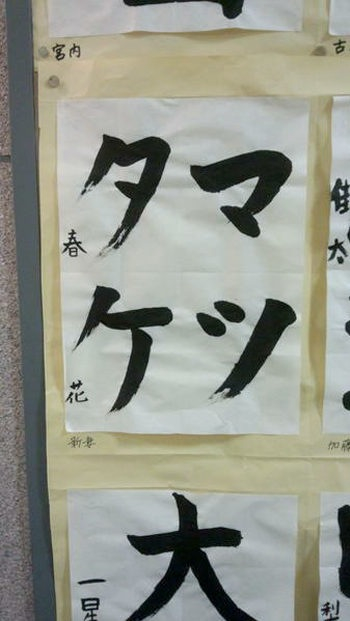 宮内
古
マツ
タケ
春花
新妻
太
加藤
大
一星
利